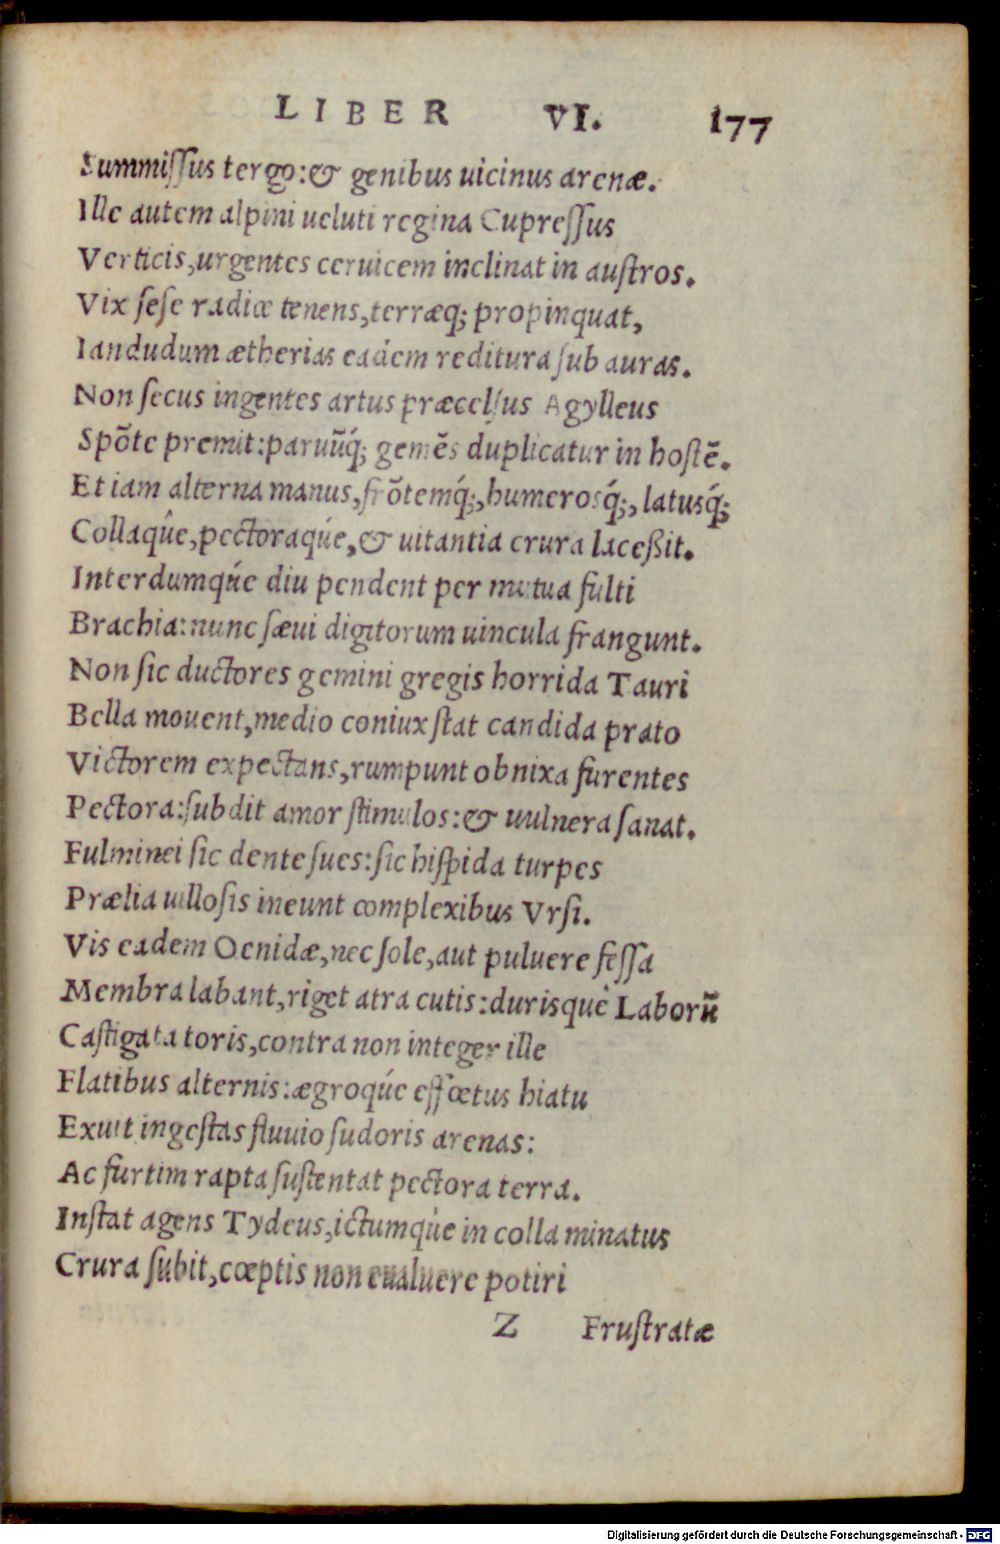 LIBER VI. 177
Summiſſus tergo:& genibus uicinus arenæ.
Ille autem alpini ueluti regina Cupreſſus
Verticis,urgentes ceruicem inclinat in auſtros.
Vix ſeſe radice tenens,terræq; propinquat,
Iandudum ætherias eadem reditura ſub auras.
Non ſecus ingentes artus præcelſus Agylleus
Spōte premit:paruūq́; gemēs duplicatur in hoſtē.
Et iam alterna manus,frōtemq́;,humerosq́;, latusq́;
Collaq̂ue,pectoraq́ue,& uitantia crura laceßit.
Interdumq́ue diu pendent per mutua fulti
Brachia:nunc ſæui digitorum uincula frangunt.
Non ſic ductores gemini gregis horrida Tauri
Bella mouent,medio coniux ſtat candida prato
Victorem expectans,rumpunt obnixa furentes
Pectora:ſubdit amor ſtimulos:& uulnera ſanat.
Fulminei ſic dente ſues:ſic hiſpida turpes
Prælia uilloſis ineunt complexibus Vrſi.
Vis eadem Oenidæ,nec ſole,aut puluere feſſa
Membra labant,riget atra cutis:durisquè Laborū
Caſtigata toris,contra non integer ille
Flatibus alternis:ægroq́ue effœtus hiatu
Exuit ingeſtas fluuio ſudoris arenas:
Ac furtim rapta ſuſtentat pectora terra.
Inſtat agens Tydeus,ictumq̀ue in colla minatus
Crura ſubit,cœptis non eualuere potiri
Z Fruſtratæ
Digitalisierung gefördert durch die Deutsche Forschungsgemeinschaft - DFG